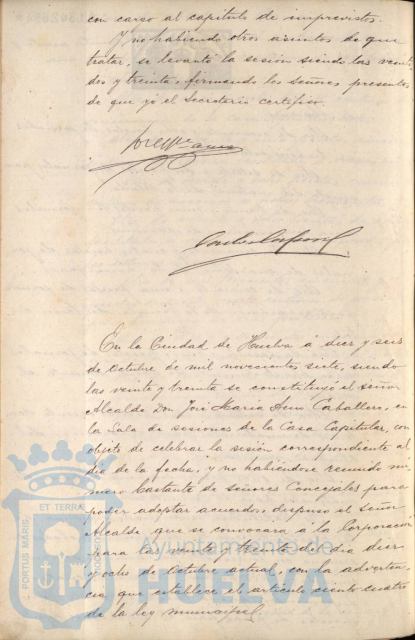 con cargo al capítulo de imprevistos.
Y no habiendo otros asuntos de que
tratar, se levantó la sesión siendo las veinti
dos y treinta, firmando los señores presentes
de que yo el Secretario certifico.
En la Ciudad de Huelva á diez y seis
de Octubre de mil novecientos siete, siendo
las veinte y treinta se constituyó el señor
Alcalde Don José María Caballero, en
la Sala de sesiones de la Casa Capitular, con
objeto de celebrar la sesión correspondiente al
día de la fecha, y no habiéndose reunido nú
mero bastante de señores Concejales para
poder adoptar acuerdos, dispuso el señor
Alcalde que se convocara a la Corporación
para las veinte y treinta del día diez
y ocho de Octubre actual, con la adverten
cia que establece el artículo ciento cuatro
de la ley municipal.
PORTUS MARIS ET TERRAE
Ayuntamiento de
HUELVA